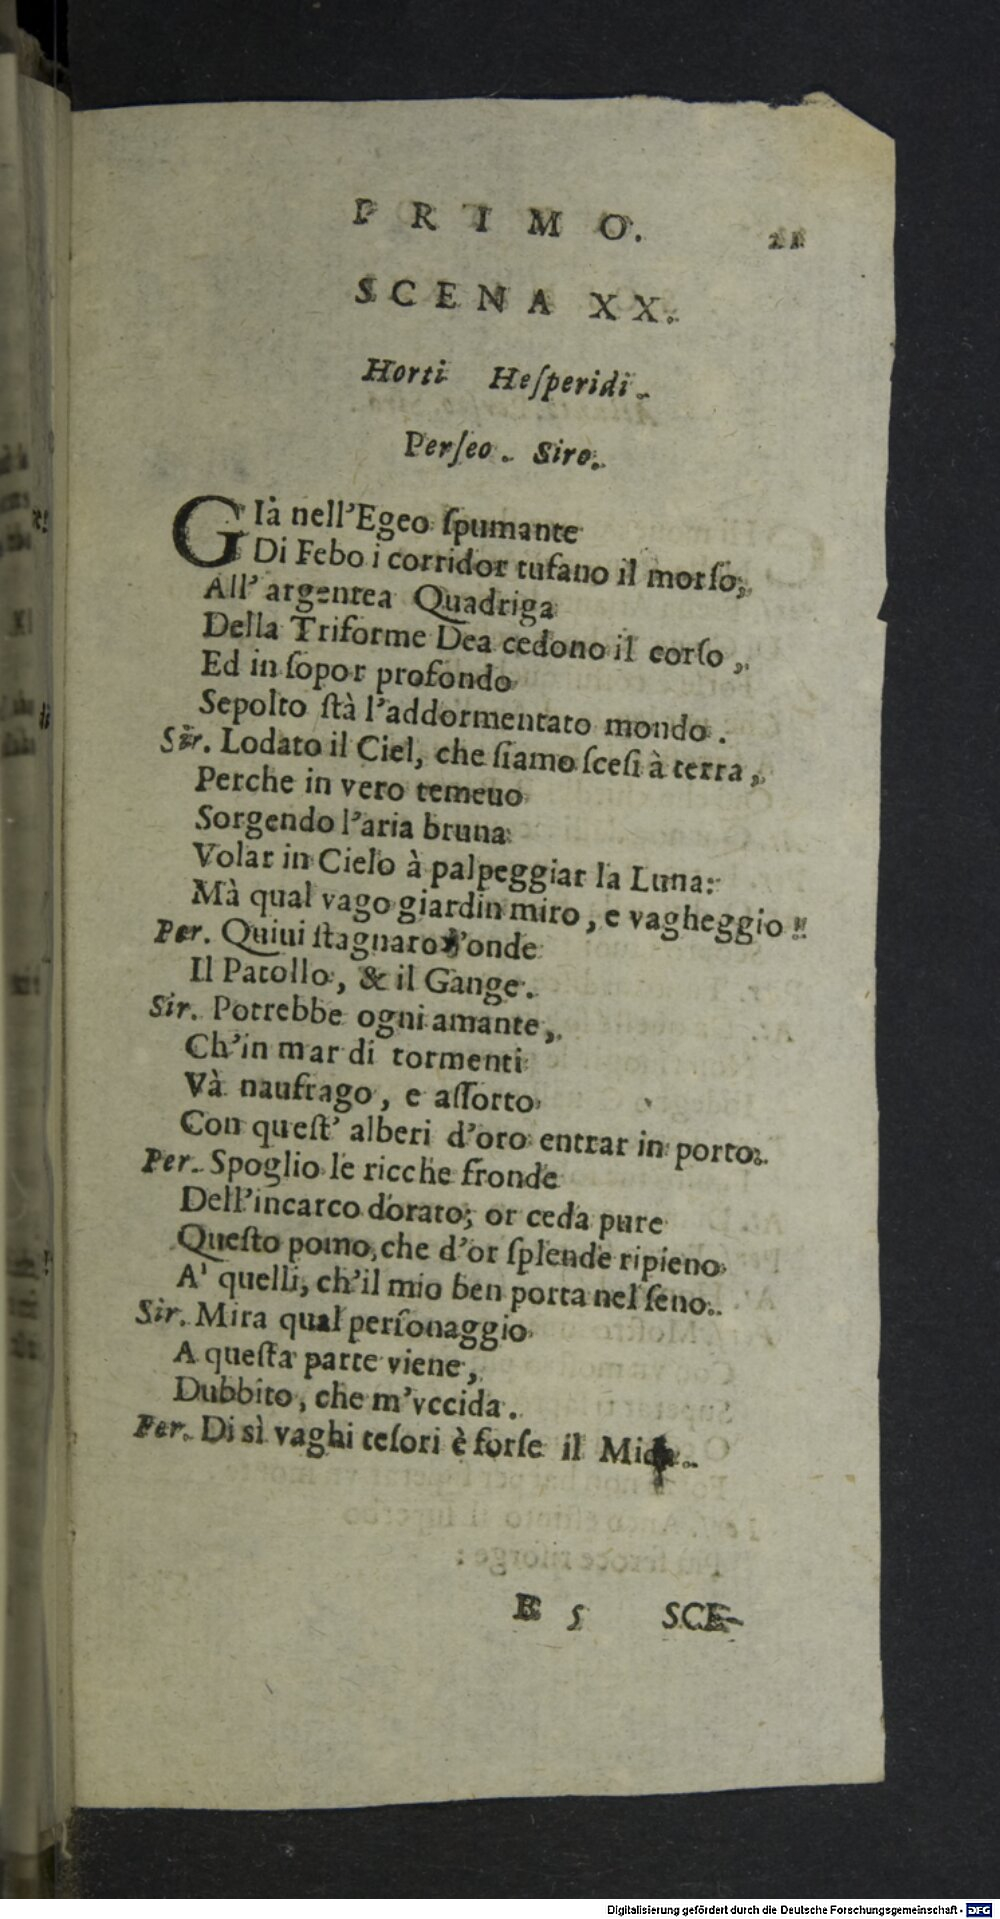 PRIMO. 21
SCENA XX.
Horti Heſperidi.
Perſeo. Siro.
GIà nell'Egeo ſpumante
Di Febo i corridor tufano il morſo,
All' argentea Quadriga
Della Triforme Dea cedono il corſo,
Ed in ſopor profondo
Sepolto ſtà l'addormentato mondo.
Sir. Lodato il Ciel, che ſiamo ſceſi à terra,
Perche in vero temeuo
Sorgendo l'aria bruna
Volar in Cielo à palpeggiar la Luna:
Mà qual vago giardin miro, e vagheggio!
Per. Quiui ſtagnaro l'onde
Il Patollo, & il Gange.
Sir. Potrebbe ogni amante,
Ch'in mar di tormenti
Và naufrago, e aſſorto
Con queſt' alberi d'oro entrar in porto.
Per. Spoglio le ricche fronde
Dell'incarco dorato; or ceda pure
Queſto pomo, che d'or ſplende ripieno
A' quelli, ch'il mio ben porta nel ſeno.
Sir. Mira qual perſonaggio
A queſta parte viene,
Dubbito, che m'vccida.
Per. Di sì vaghi teſori è forſe il Mida.
E 5 SCE-
Digitalisierung gefördert durch die Deutsche Forschungsgemeinschaft - DFG